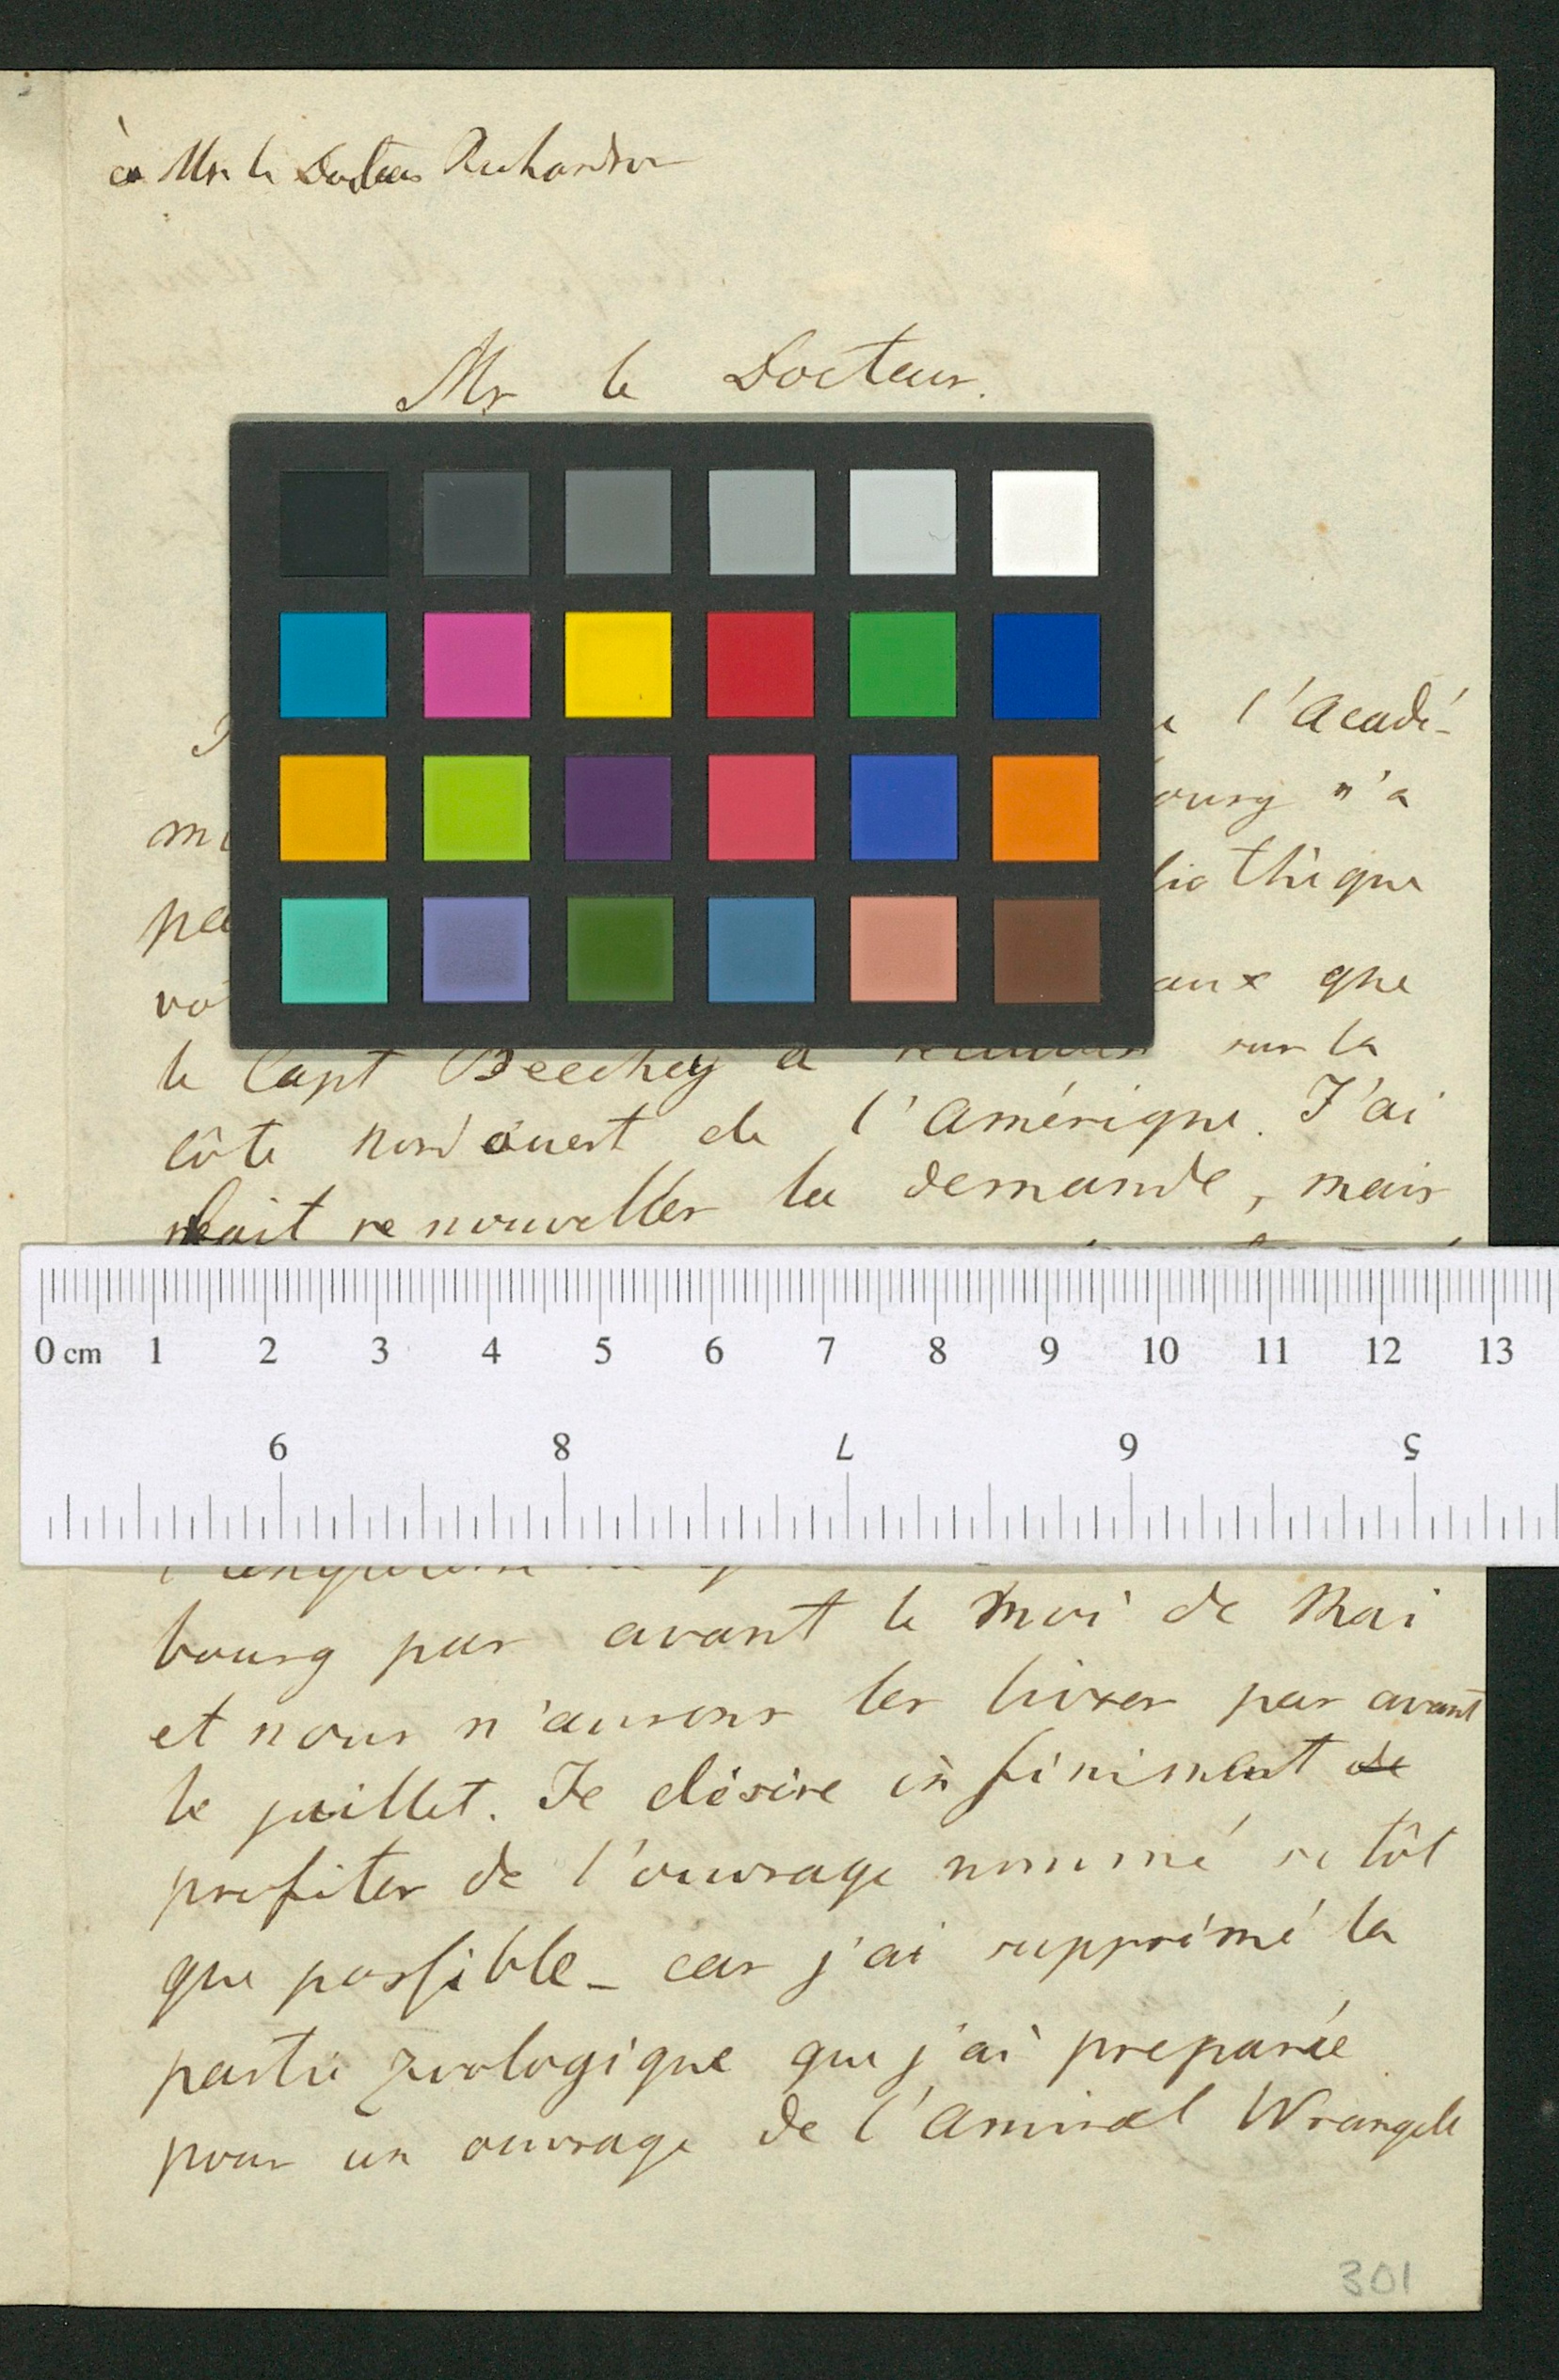 à Mr le Docteur Richardson
Mr le Docteur.
l'Acadé-
ourg n'a
liothèque
aux que
le Capt Beechey a sur la
côte nord ouest de l'Amérique. J'ai
fait renouveller la demande, mais
0 cm 1 2 3 4 5 6 7 8 9 10 11 12 13
9 8 7 6 5
bourg pas avant le moi de Mai
et nous n'aurons les livres pas avant
le juillet. Je désire infiniment de
profiter de l'ouvrage nommé si tôt
que possible_ car j'ai supprimé la
partie zoologique que j'ai preparée
pour un ouvrage de l'Amiral Wrangell
301